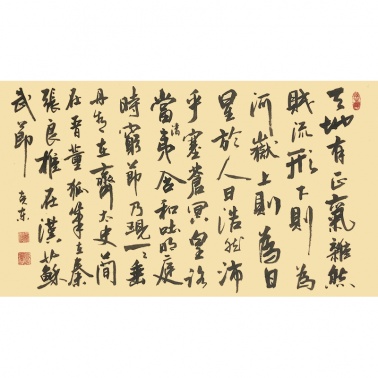 天地有正氣雜然
賦流形下則為
河嶽上則為日
星於人曰浩然沛
乎塞蒼冥皇路
當清夷含和吐明庭
時窮節乃現一一垂
丹青在齊太史簡
在晉董狐筆在秦
張良椎在漢蘇
武節